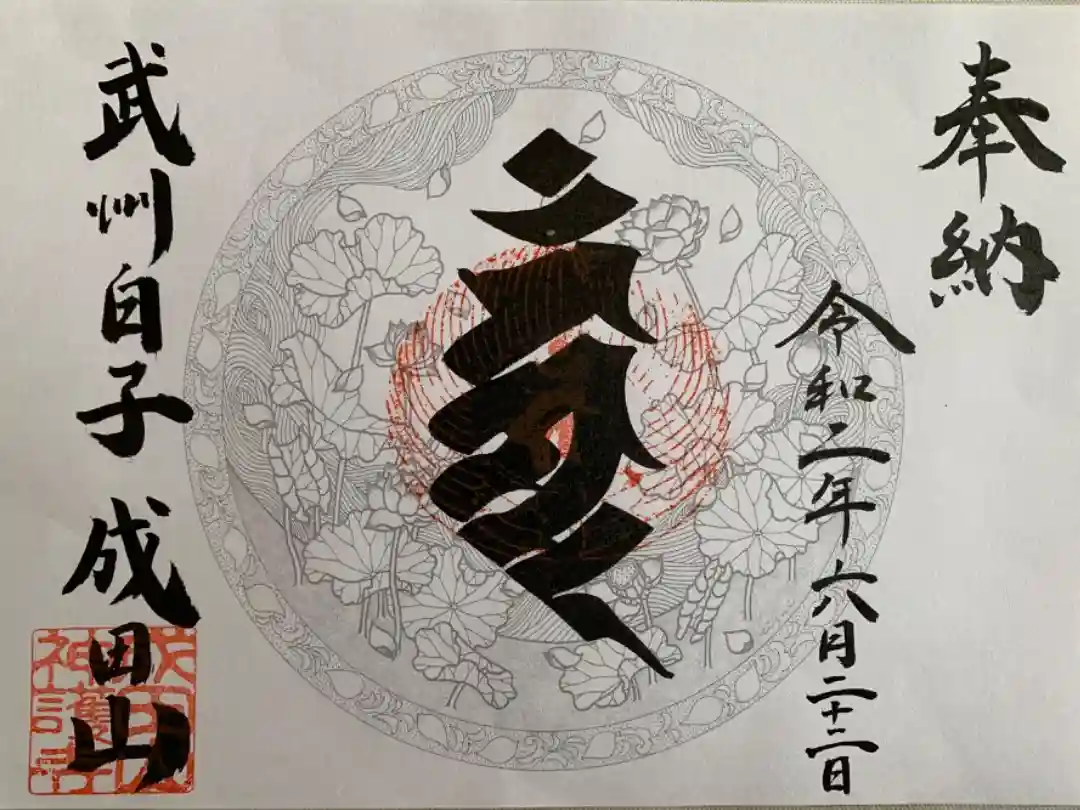 奉納
令和二年六月二十二日
武州白子 成田山
成田山
神護寺